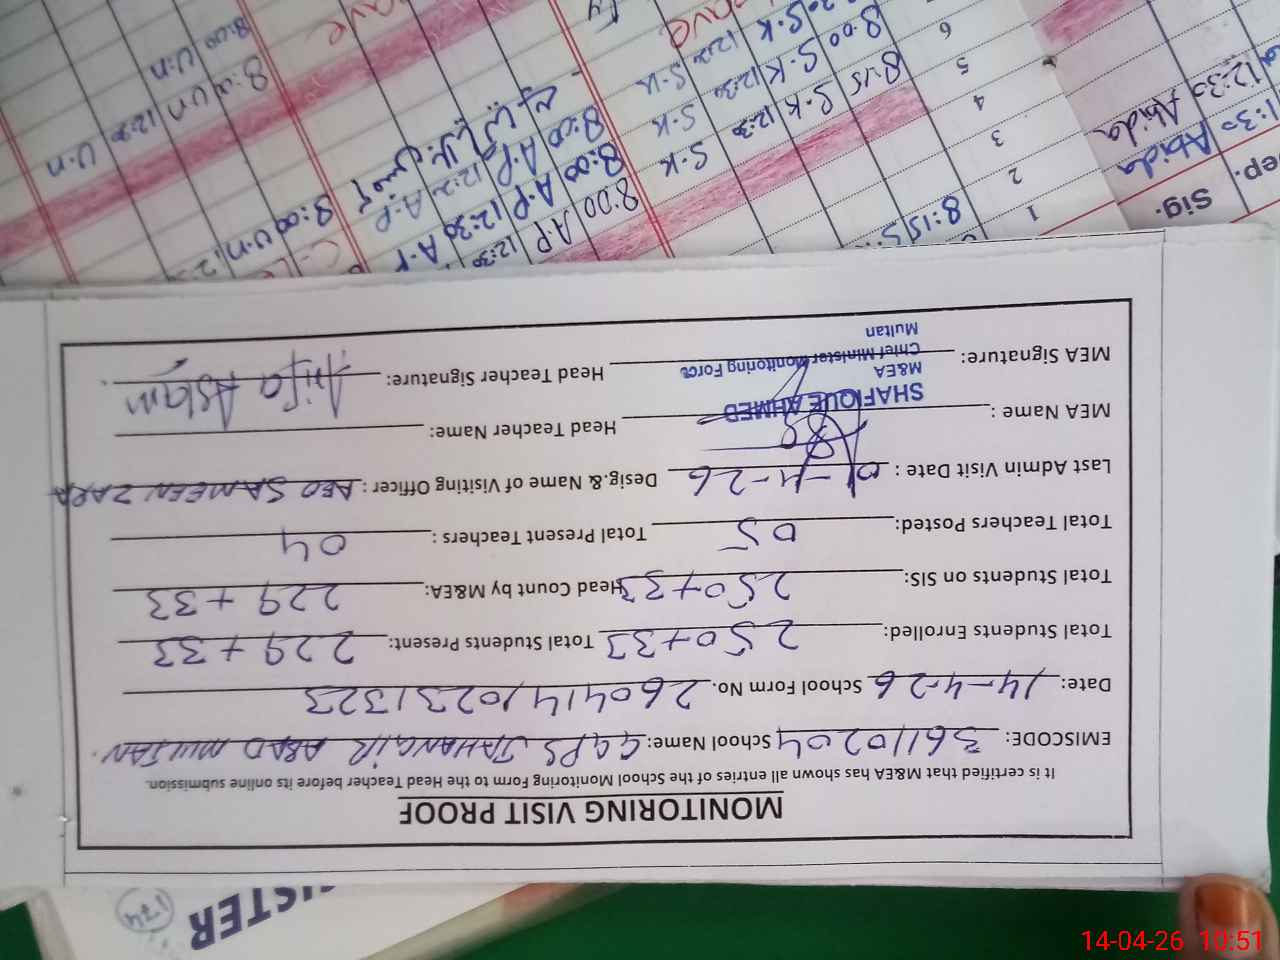 MONITORING VISIT PROOF
It is certified that M&EA has shown all entries of the School Monitoring Form to the Head Teacher before its online submission.
EMISCODE: 36110204 School Name: GGPS JAHANGIR ABAD MULTAN.
Date: 14-4-26 School Form No. 26041410231323
Total Students Enrolled: 250+33 Total Students Present: 229+33
Total Students on SIS: 250+33 Head Count by M&EA: 229+33
Total Teachers Posted: 05 Total Present Teachers: 04
Last Admin Visit Date: 01-4-26 Desig.& Name of Visiting Officer: AEO SAMEEN ZARA
MEA Name: SHAFIQUE AHMED Head Teacher Name:
M&EA
MEA Signature: Chief Minister Monitoring Force Head Teacher Signature: Arifa Aslam
Multan
Sig.
ep.
1
2
3
4
5
6
11:30 Abida
12:30 Abida
8:15 S.
8:15 S.K 12:30 S.K
8:00 S.K 12:30 S.K
S.K 12:30 S.K
8:00 A.P 12:30
8:00 A.P 12:30 A.P
8:00 A.P 12:2 A.P
8:00 U.n
8:00 U.n 12:30 U.n
8:00 U.n
ISTER
174
14-04-26 10:51